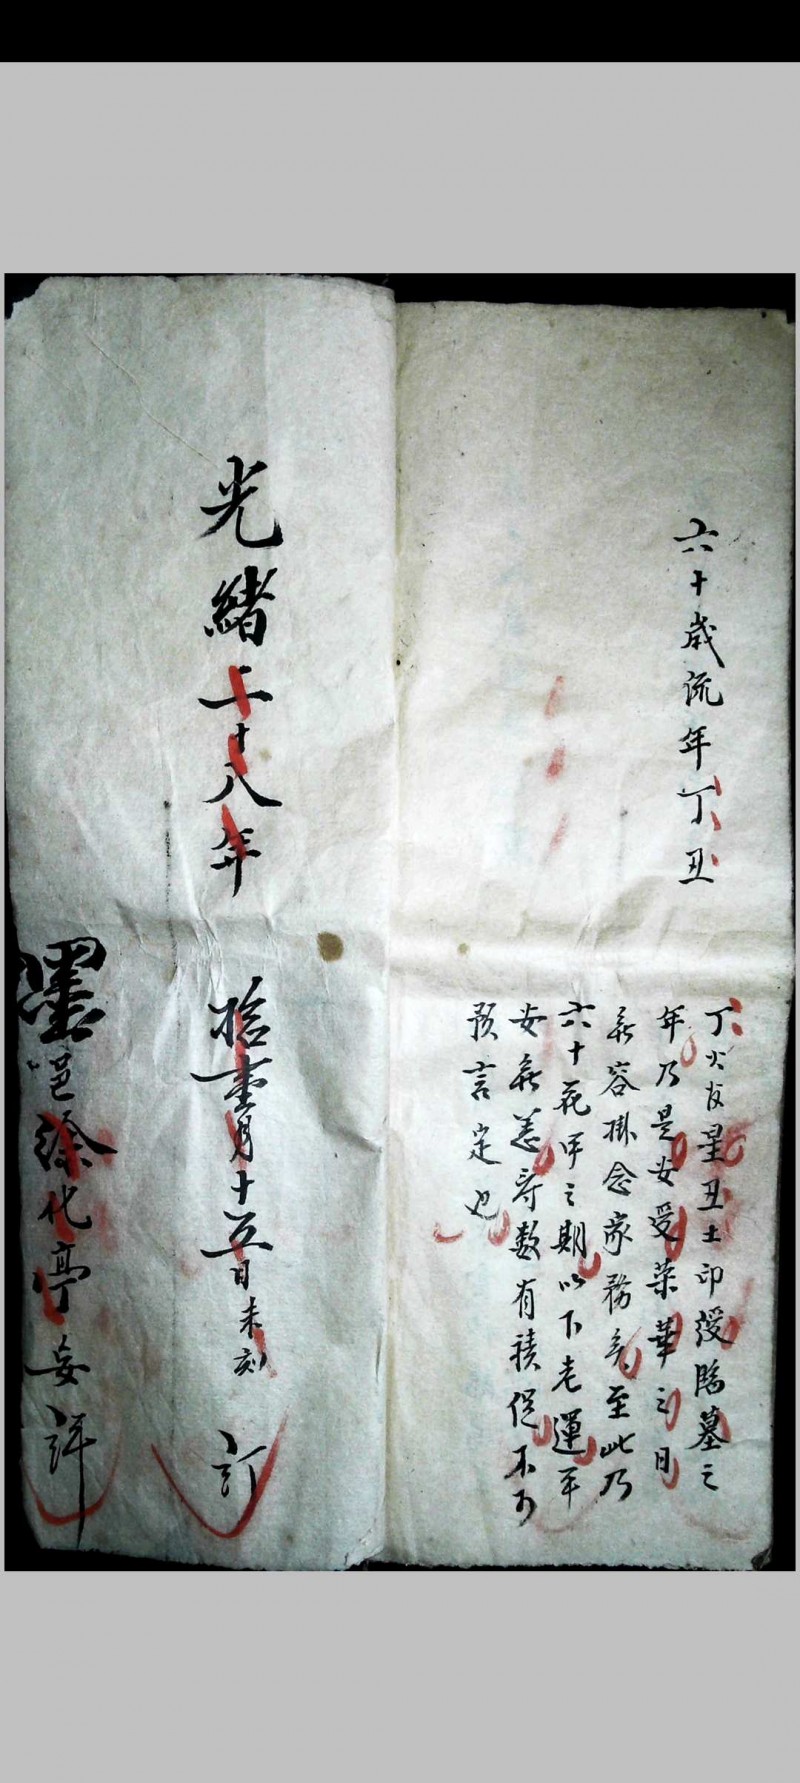 六十歲流年丁丑
丁火比星丑土印綬臨墓之
年乃是安受榮華之日
無容掛念家務矣至此乃
六十花甲之期以下老運平
安無恙壽數有積促不可
預言定也
光緒二十八年
拾壹月十五日未刻 訂
墨邑徐化亭妄評